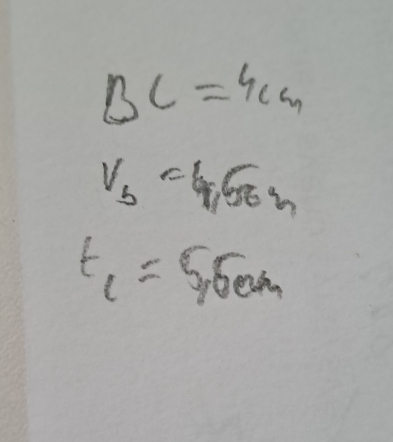 BC = 4cm
V_b = 4,5cm
t_c = 5,5cm